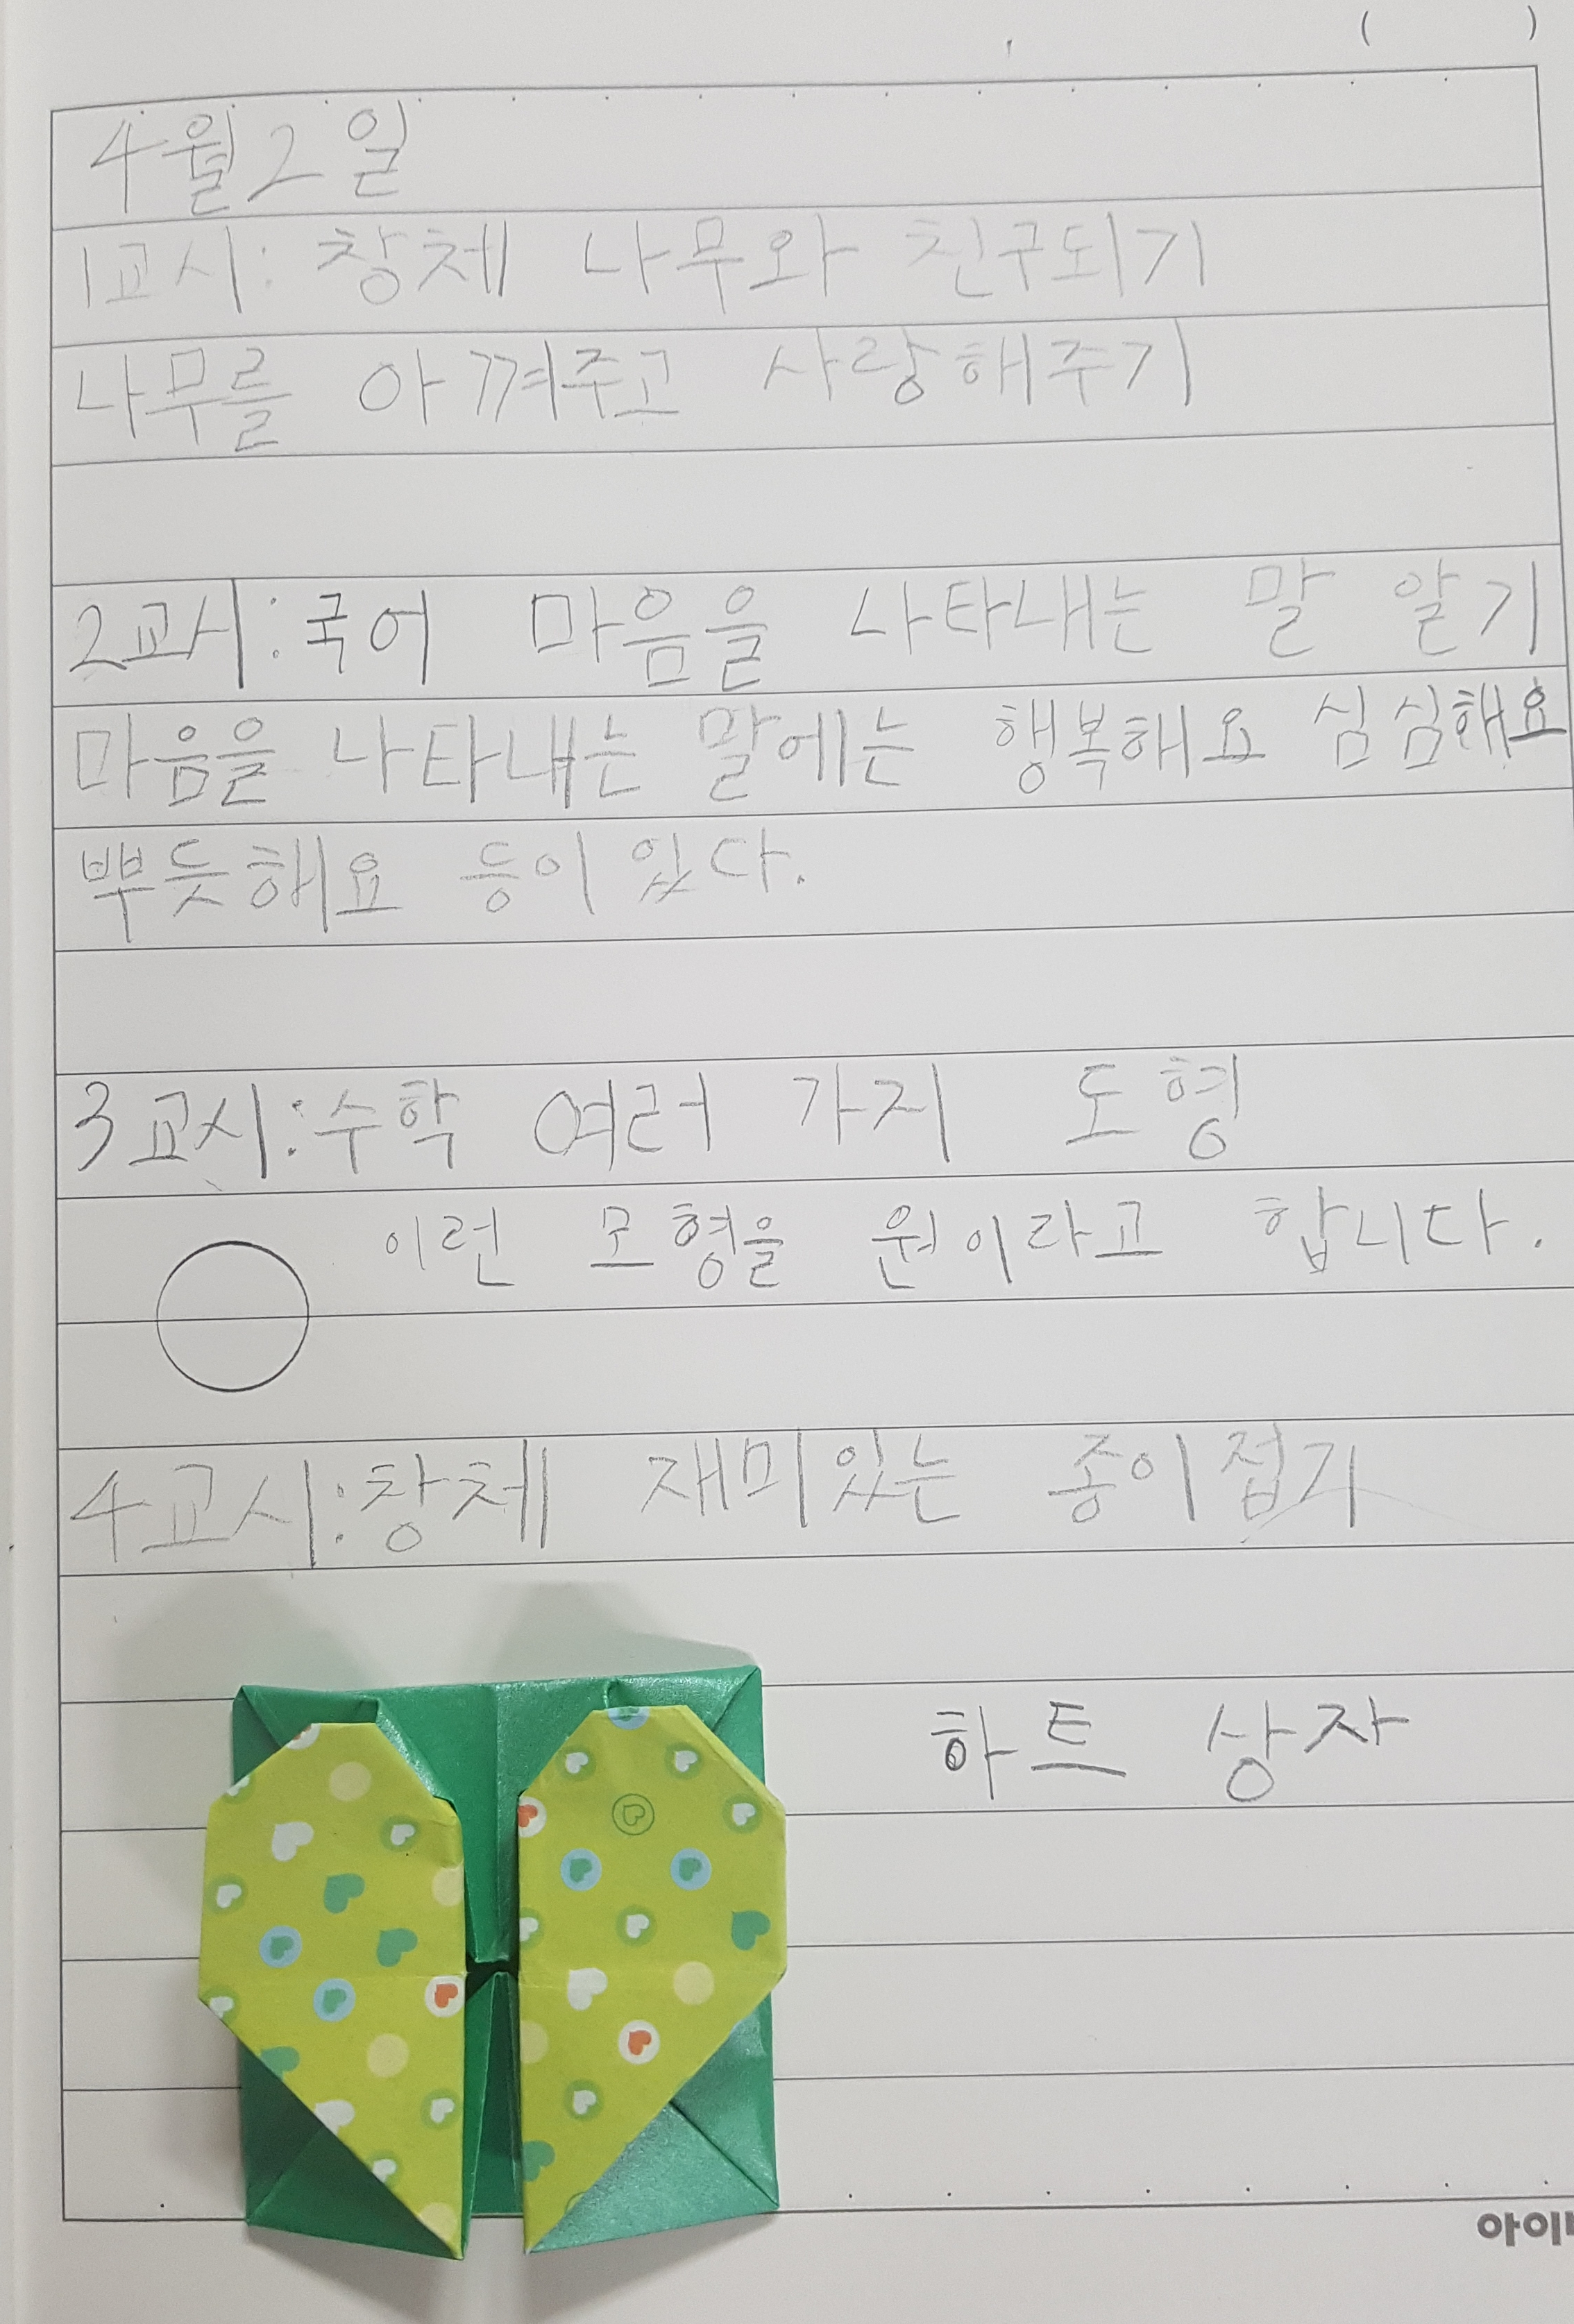 ( )
4월2일
1교시: 창체 나무와 친구되기
나무를 아껴주고 사랑해주기
2교시:국어 마음을 나타내는 말 알기
마음을 나타내는 말에는 행복해요 심심해요
뿌듯해요 등이 있다.
3교시:수학 여러 가지 도형
이런 모형을 원이라고 합니다.
4교시:창체 재미있는 종이접기
하트 상자